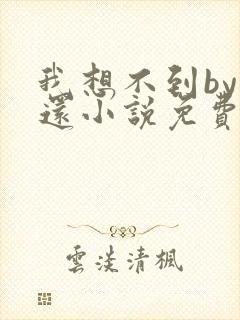 我想不到by
還小說免費
雲淡清楓